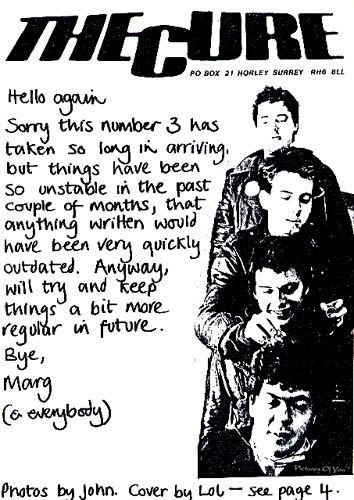 THE CURE
PO BOX 21 HORLEY SURREY RH6 8LL
Hello again
Sorry this number 3 has
taken so long in arriving,
but things have been
so unstable in the past
couple of months, that
anything written would
have been very quickly
outdated. Anyway,
will try and keep
things a bit more
regular in future.
Bye,
Marg
(& everybody)
Pictures Of You
Photos by John. Cover by Lol — see page 4.